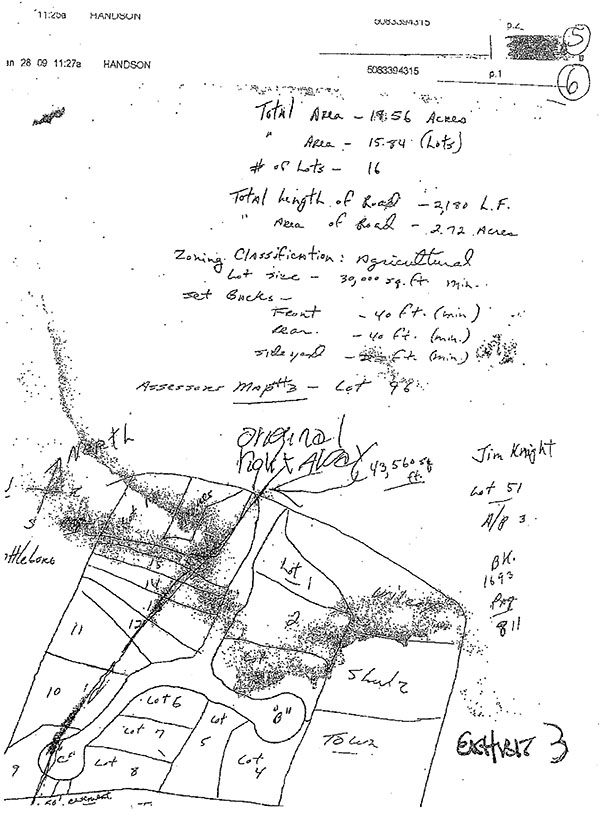 11:25a HANDSON 5083394315 p.2
5
an 28 09 11:27a HANDSON 5083394315 p.1
6
Total Area - 18.56 Acres
" Area - 15.84 (Lots)
# of Lots - 16
Total Length of Road - 2,180 L.F.
" Area of Road - 2.72 Acres
Zoning Classification: Agricultural
Lot size - 30,000 sq. ft. min.
Set Backs -
Front - 40 ft. (min)
Rear - 40 ft. (min.)
Sideyard - ft. (min)
Assessors Map #3 - Lot 96
original
right Away
43,560 sq
ft.
Jim Knight
Lot 51
A/P 3
BK.
1693
Pag
811
North
S
ttleboro
15
14
13
12
11
10
9
Lot 1
2
Lot 6
Lot 7
Lot 8
Lot 5
Lot 4
"B"
"C"
Town
Exhibit 3